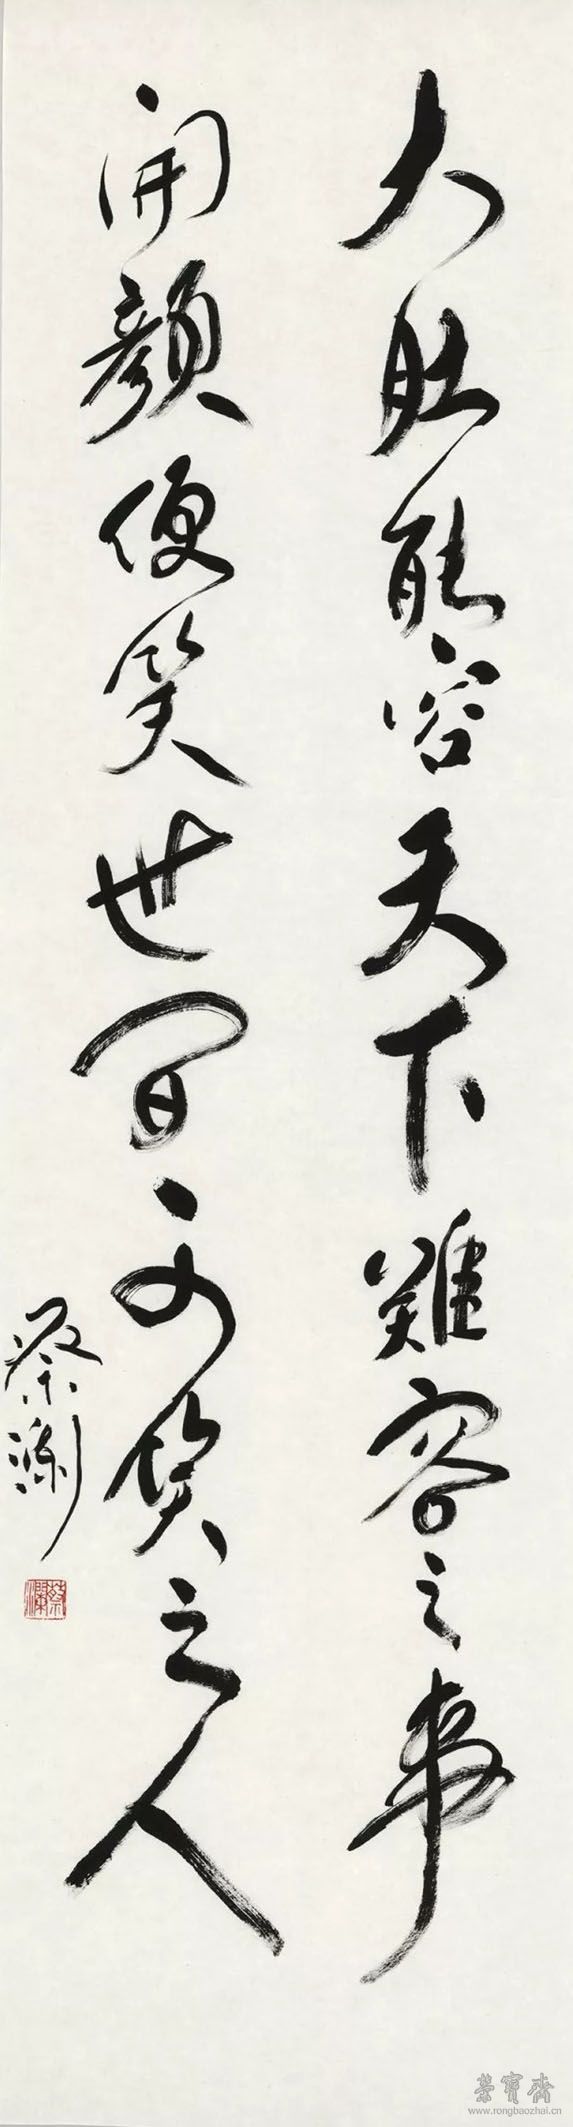 大肚能容天下難容之事
開顏便笑世間可笑之人
蔡瀾
蔡瀾
榮寶齋
www.rongbaozhai.cn